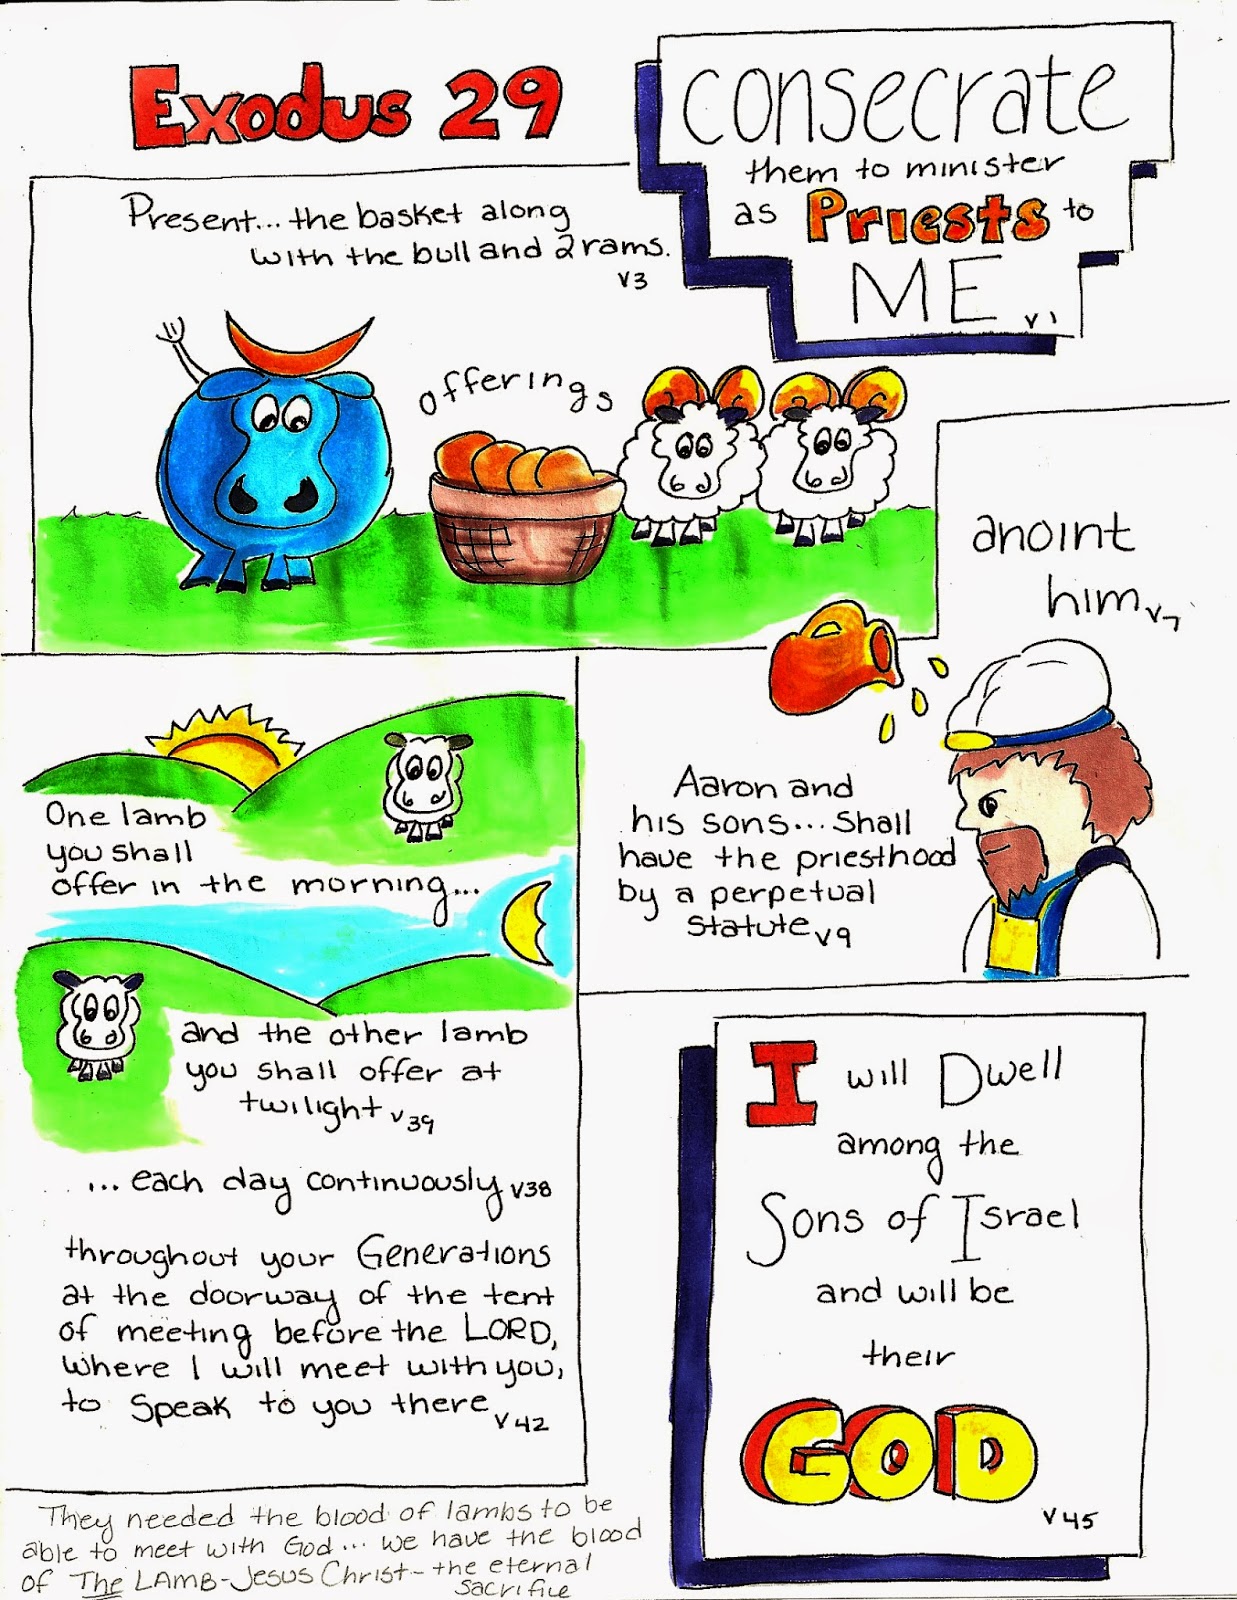 Exodus 29
Consecrate
them to minister
as Priests to
ME v1
Present... the basket along
with the bull and 2 rams.
v3
offerings
anoint
him v7
Aaron and
his sons... shall
have the priesthood
by a perpetual
statute v9
One lamb
you shall
offer in the morning...
and the other lamb
you shall offer at
twilight v39
... each day continuously v38
throughout your Generations
at the doorway of the tent
of meeting before the LORD,
where I will meet with you,
to speak to you there
v42
I will Dwell
among the
Sons of Israel
and will be
their
GOD
v45
They needed the blood of lambs to be
able to meet with God... we have the blood
of The LAMB - Jesus Christ - the eternal
sacrifice